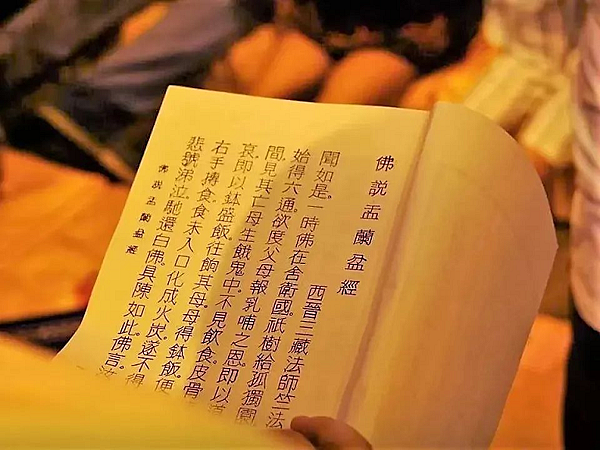 佛說盂蘭盆經
西晉三藏法師竺法
聞如是。一時佛在舍衛國。祇樹給孤獨園
始得六通。欲度父母報乳哺之恩。即以道
間。見其亡母生餓鬼中。不見飲食。皮骨
哀。即以鉢盛飯。往餉其母。母得鉢飯。便
右手摶食。食未入口化成火炭。遂不得
悲號涕泣。馳還白佛。具陳如此。佛言。汝
佛說盂蘭盆經